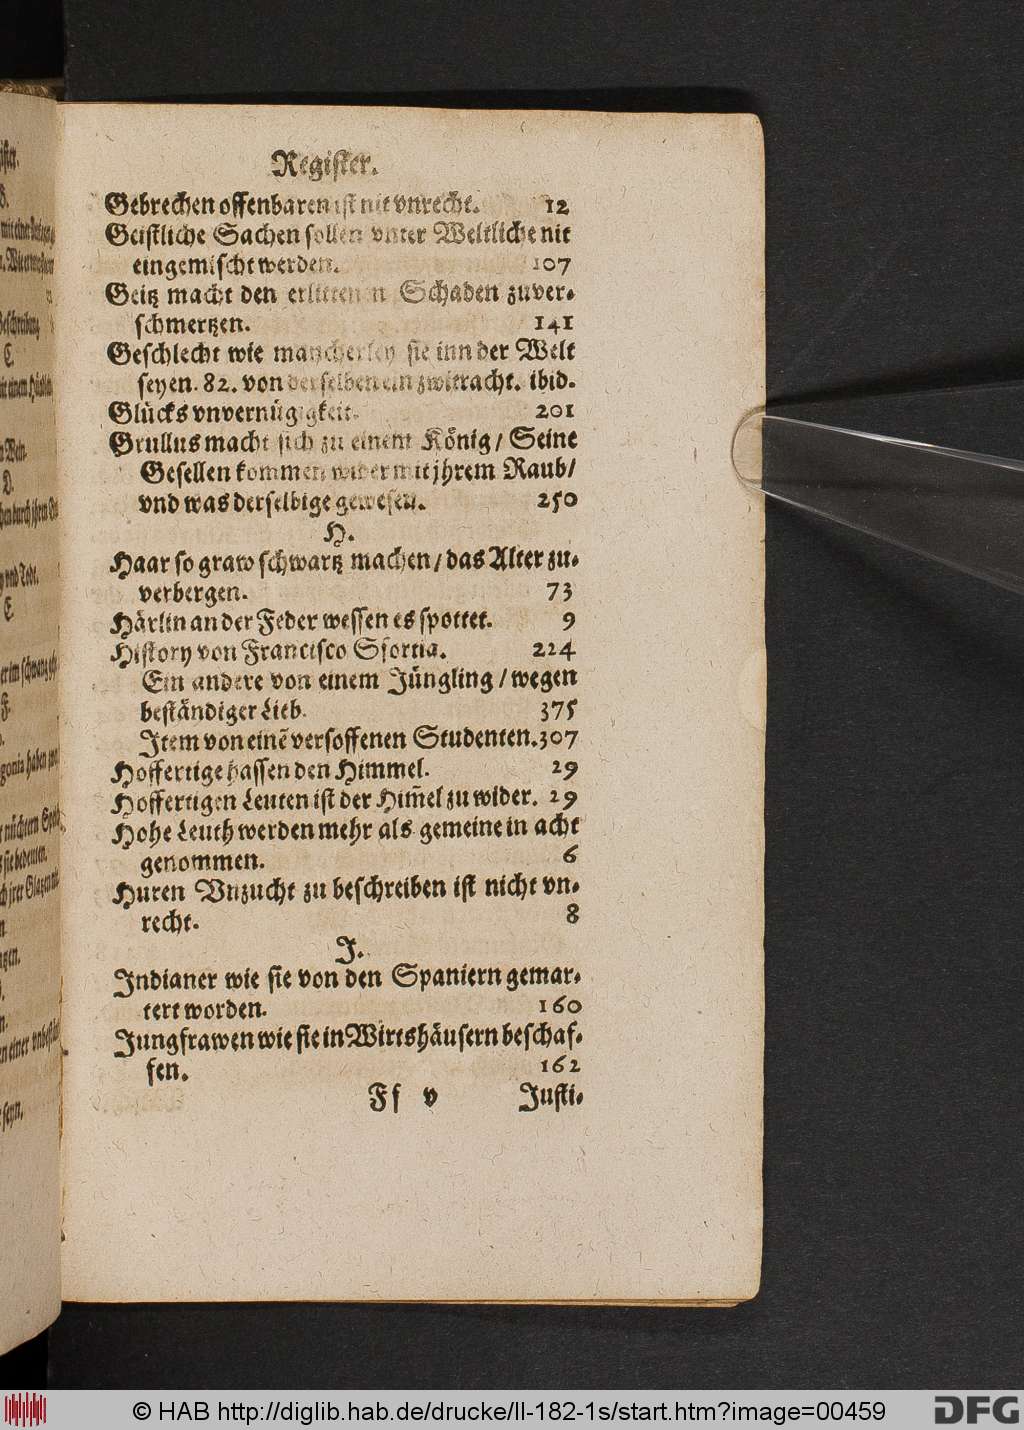 Register.
Gebrechen offenbaren ist nit vnrecht. 12
Geistliche Sachen sollen vnter Weltliche nit
eingemischt werden. 107
Geitz macht den erlittenen Schaden zuver-
schmertzen. 141
Geschlecht wie mancherley sie inn der Welt
seyen. 82. von derselben ein zwitracht. ibid.
Glücks vnvernügigkeit. 201
Grullus macht sich zu einem König / Seine
Gesellen kommen wider mit jhrem Raub /
vnd was derselbige gewesen. 250
H.
Haar so graw schwartz machen / das Alter zu-
verbergen. 73
Härlin an der Feder wessen es spottet. 9
History von Francisco Sfortia. 224
Ein andere von einem Jüngling / wegen
beständiger Lieb. 375
Item von einẽ versoffenen Studenten. 307
Hoffertige hassen den Himmel. 29
Hoffertigen Leuten ist der Him̃el zu wider. 29
Hohe Leuth werden mehr als gemeine in acht
genommen. 6
Huren Vnzucht zu beschreiben ist nicht vn-
recht. 8
I.
Indianer wie sie von den Spaniern gemar-
tert worden. 160
Jungfrawen wie sie in Wirtshäusern beschaf-
fen. 162
Ff v Justi-
© HAB http://diglib.hab.de/drucke/ll-182-1s/start.htm?image=00459
DFG